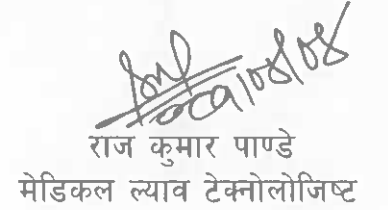 राज कुमार पाण्डे
मेडिकल ल्याव टेक्नोलोजिष्ट